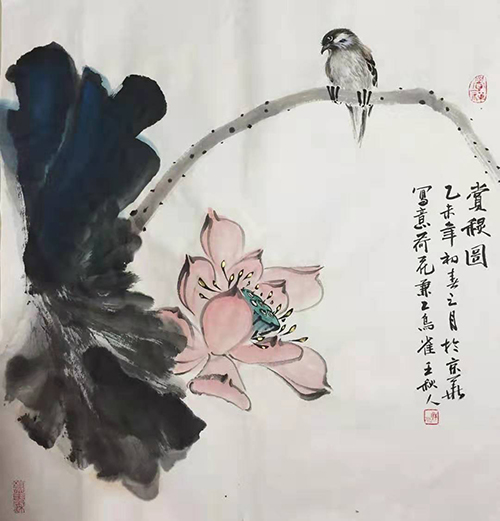 賞圖
乙未年初春三月於京華
寫意荷花兼工鳥雀王秋人